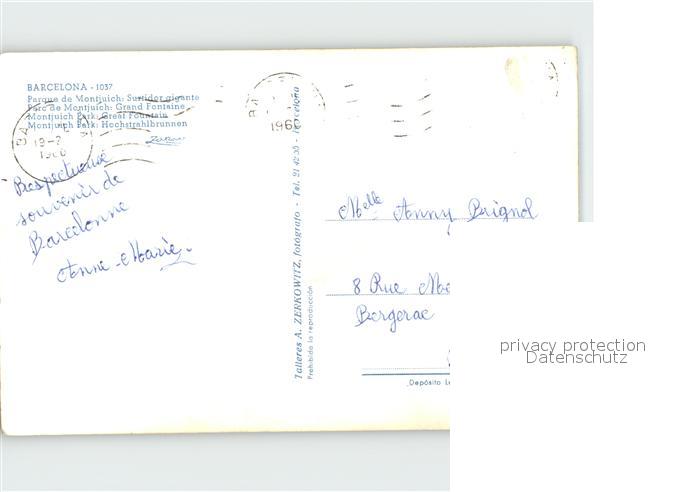 BARCELONA - 1037
Parque de Montjuich: Surtidor gigante
Parc de Montjuich: Grand Fontaine
Montjuich Park: Great Fountain
Montjuich Park: Hochstrahlbrunnen
Respectueux
souvenir de
Barcelonne
Anne-Marie.
Talleres A. ZERKOWITZ, fotógrafo - Tel. 21 42 30 - Barcelona
Prohibida la reproducción
Melle Anny Brignol
8 Rue
Bergerac
Depósito
privacy protection
Datenschutz